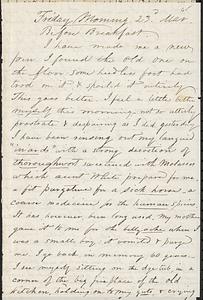 Friday Morning 23d Mar.
Before Breakfast.
I have made me a new
pen I found the old one on
the floor some heedless foot had
trod on it & spoild it entirely
This goes better. I feel a little better
myself this morning, not so utterly
prostrate & despairing as I did yesterday
I have been rinsing out my languid
"inards" with a strong decoction of
thoroughwort sweetened with Molasses
which aunt White prepared for me
a fit purgative for a sick horse, a
coarse medicine for the human
It has however been long used, my mother
gave it to me for the bellyache when I
was a small boy, it vomited & purged
me. I go back in memory 60 years.
I see myself sitting on the dyetub in a
corner of the big fire place of the old
kitchen, holding on to my guts & crying